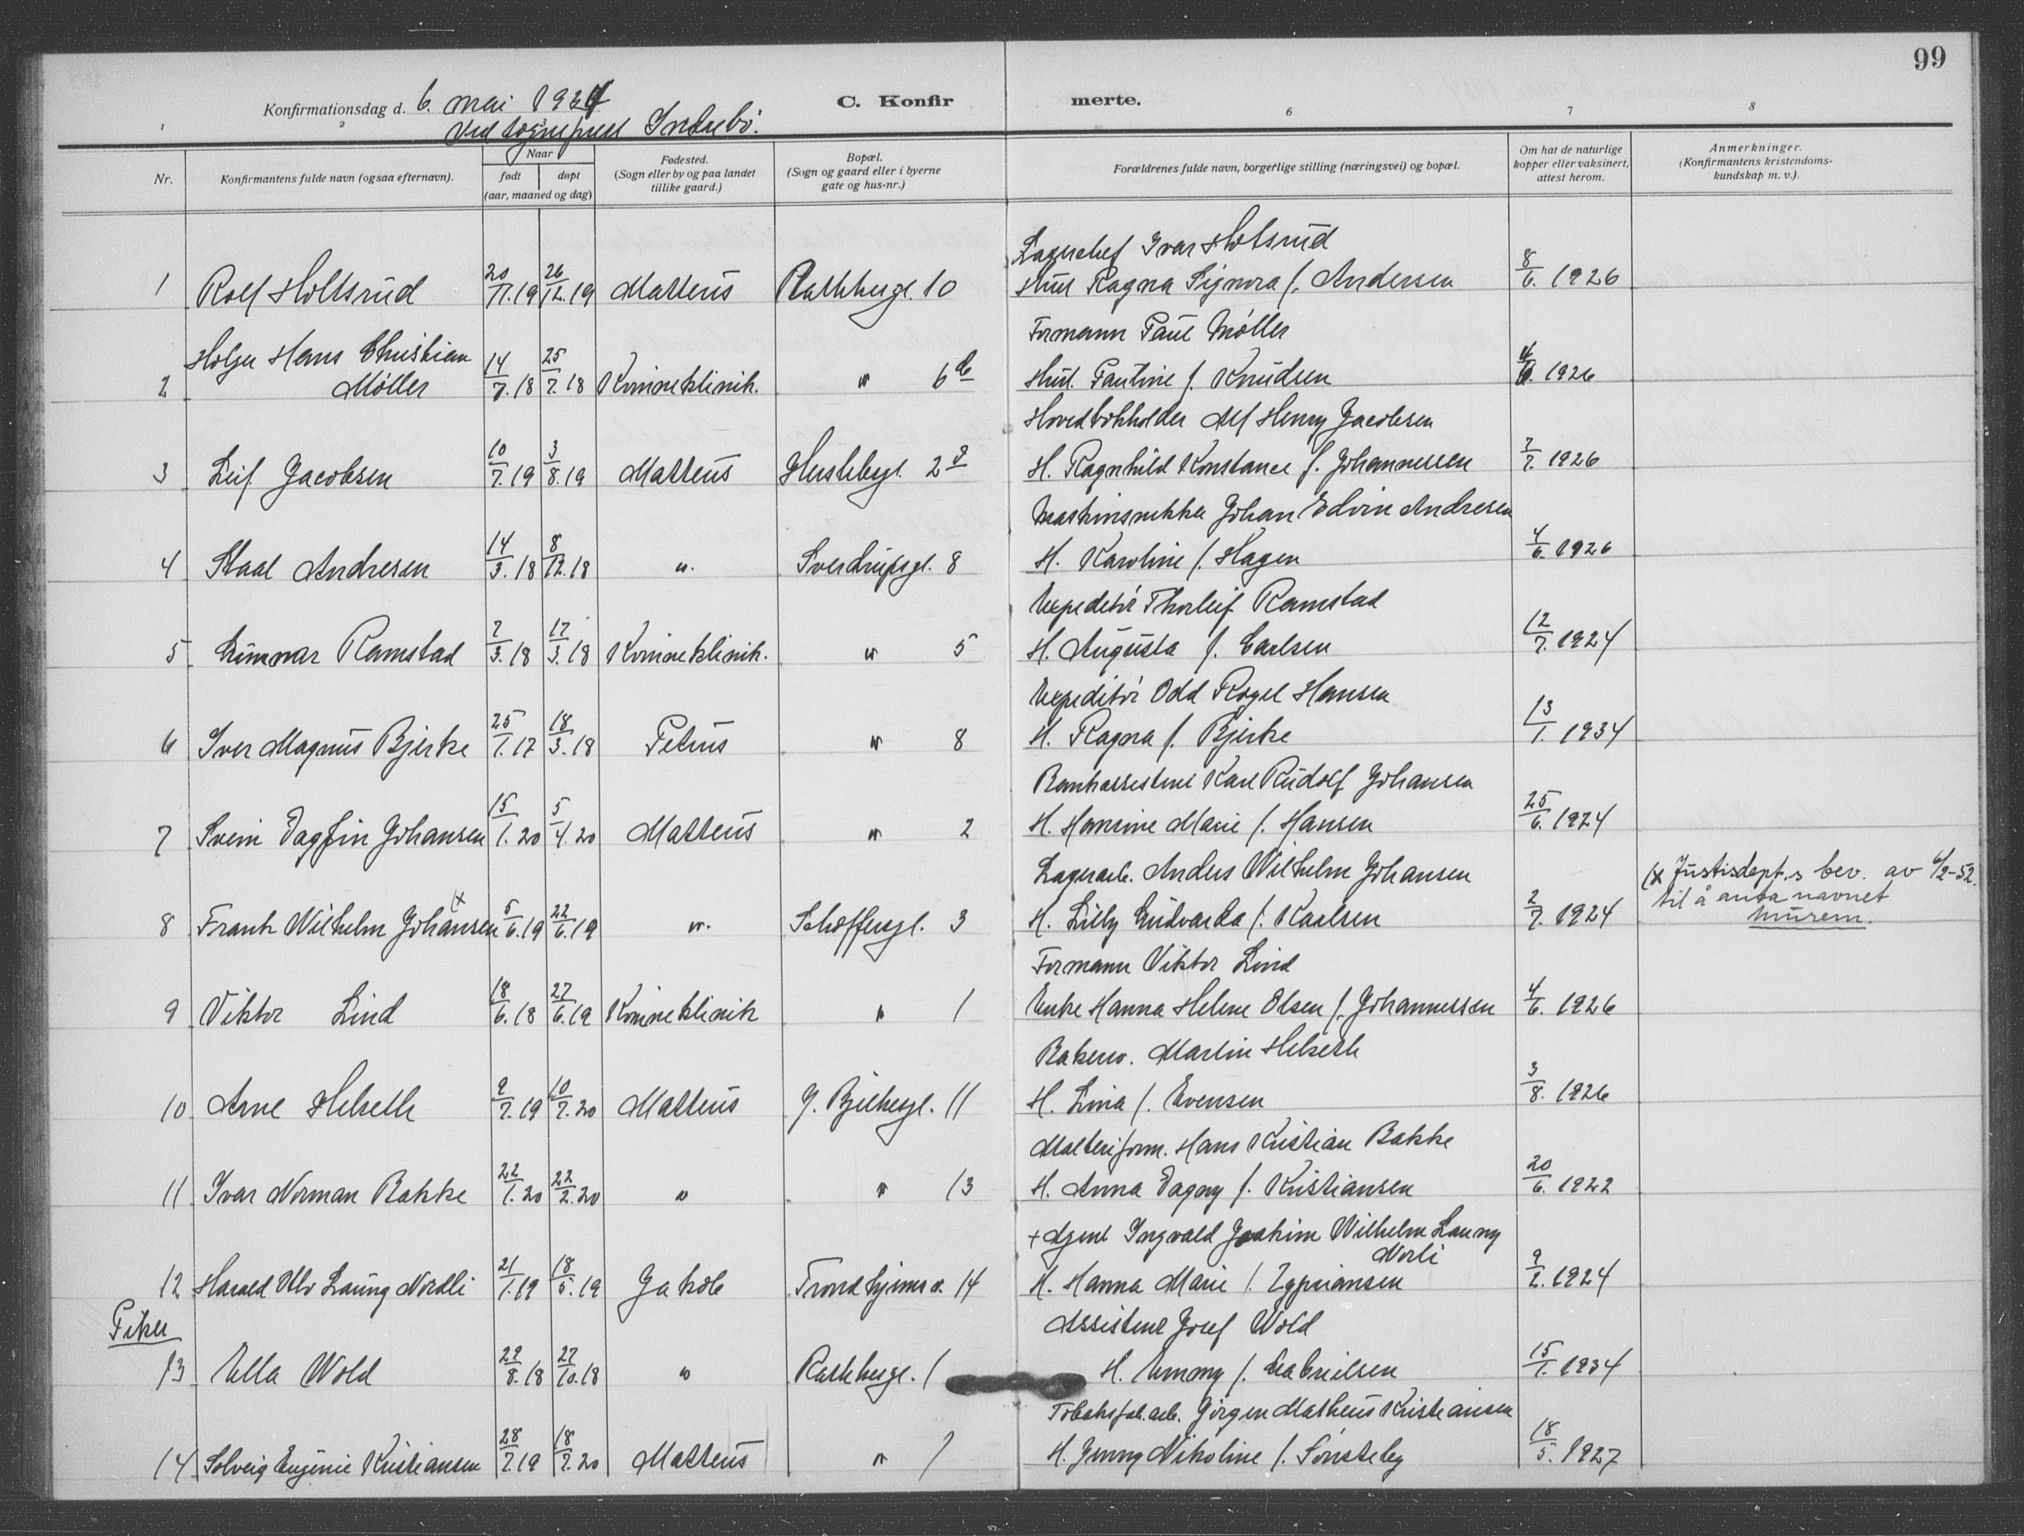 99
Konfirmationsdag d. 6. mai 1934
C. Konfir merte.
Ved sogneprest Indrebö.
1 2 3 6 7 8
Nr.
Konfirmantens fulde navn (ogsaa efternavn).
Naar
født døpt
(aar, maaned og dag)
Fødested.
(Sogn eller by og paa landet
tillike gaard.)
Bopæl.
(Sogn og gaard eller i byerne
gate og hus-nr.)
Forældrenes fulde navn, borgerlige stilling (næringsvei) og bopæl.
Om hat de naturlige
kopper eller vaksinert,
attest herom.
Anmerkninger.
(Konfirmantens kristendoms-
kundskap m. v.).
Lagerchef Ivar Holtsrud
1 Rolf Holtsrud 20/11.19 26/12.19 Matteus Rathkesgt. 10 Hust. Ragna Signora f. Andersen 8/6. 1926
Formann Paul Møller
Holger Hans Christian
2 Møller 14/7.18 25/7.18 Kvinneklinik. " 6 Hust. Pauline f. Knudsen 1926
Hovedbokholder Alf Henry Jacobsen
3 Leif Jacobsen 10/7.19 3/8.19 Matteus Herslebsgt. 2 H. Ragnhild Konstance f. Johannessen 7/7. 1926
Maskinsnekker Johan Edvin Andresen
4 Andresen 14/3.18 8/12.18 ". Sverdrupsgt. 8 H. Karoline f. Hagen 4/6. 1926
Expeditör Thorleif Ramstad
5 Gunnar Ramstad 7/3.18 17/3.18 Kvinneklinik. " 5 H. Augusta f. Carlsen 12/7. 1924
Expeditör Odd Hansen
6 Iver Magnus Bjerke 25/1.17 18/3.18 Petrus " 8 H. Ragna f. Bjerke 13/1. 1934
Bankassistent Karl Rudolf Johansen
7 Svein Dagfin Johansen 15/1.20 5/4.20 Matteus " 2 H. Hansine Marie f. Hansen 25/6. 1924
Lagerarb. Anders Wilhelm Johansen
(x Justisdept.s bev. av 6/2-52.
til å anta navnet
Murem.
8 Frank Wilhelm Johansen (x 5/6.19 22/6.19 ". Schæffersgt. 3 H. Lilly Gudvarda f. Karlsen 2/7. 1924
Formann Viktor Lind
9 Viktor Lind 18/6.18 27/6.19 Kvinneklinik " 1 Enke Hanna Helene Olsen f. Johannessen 4/6. 1926
Martin Helseth
10 Arne Helseth 9/7.19 10/7.20 Matteus J. Bjelkesgt. 11 H. Lina f. Evensen 3/8. 1926
Malteriform. Hans Kristian Bakke
11 Ivar Norman Bakke 22/1.20 22/2.20 " " 13 H. Anna Dagny f. Kristiansen 20/6. 1922
+ Agent Ingvald Joakim Wilhelm Laung
Norli
12 Harald Ulv Laung Nordli 21/1.19 18/5.19 Jakob Trondhjems v. 14 H. Hanna Marie f. Zypriansen 9/2. 1924
Piker
Assistent Josef Wold
13 Ella Wold 22/8.18 27/10.18 " Rathkesgt. 1 H. Emmy f. Gabrielsen 15/1. 1934
Tobaksfab.arb. Jörgen Matheus Kristiansen
14 Solveig Eugenie Kristiansen 28/7.19 18/7.20 Matteus " 1 H. Jenny Nikoline f. Sönsteby 18/5. 1927